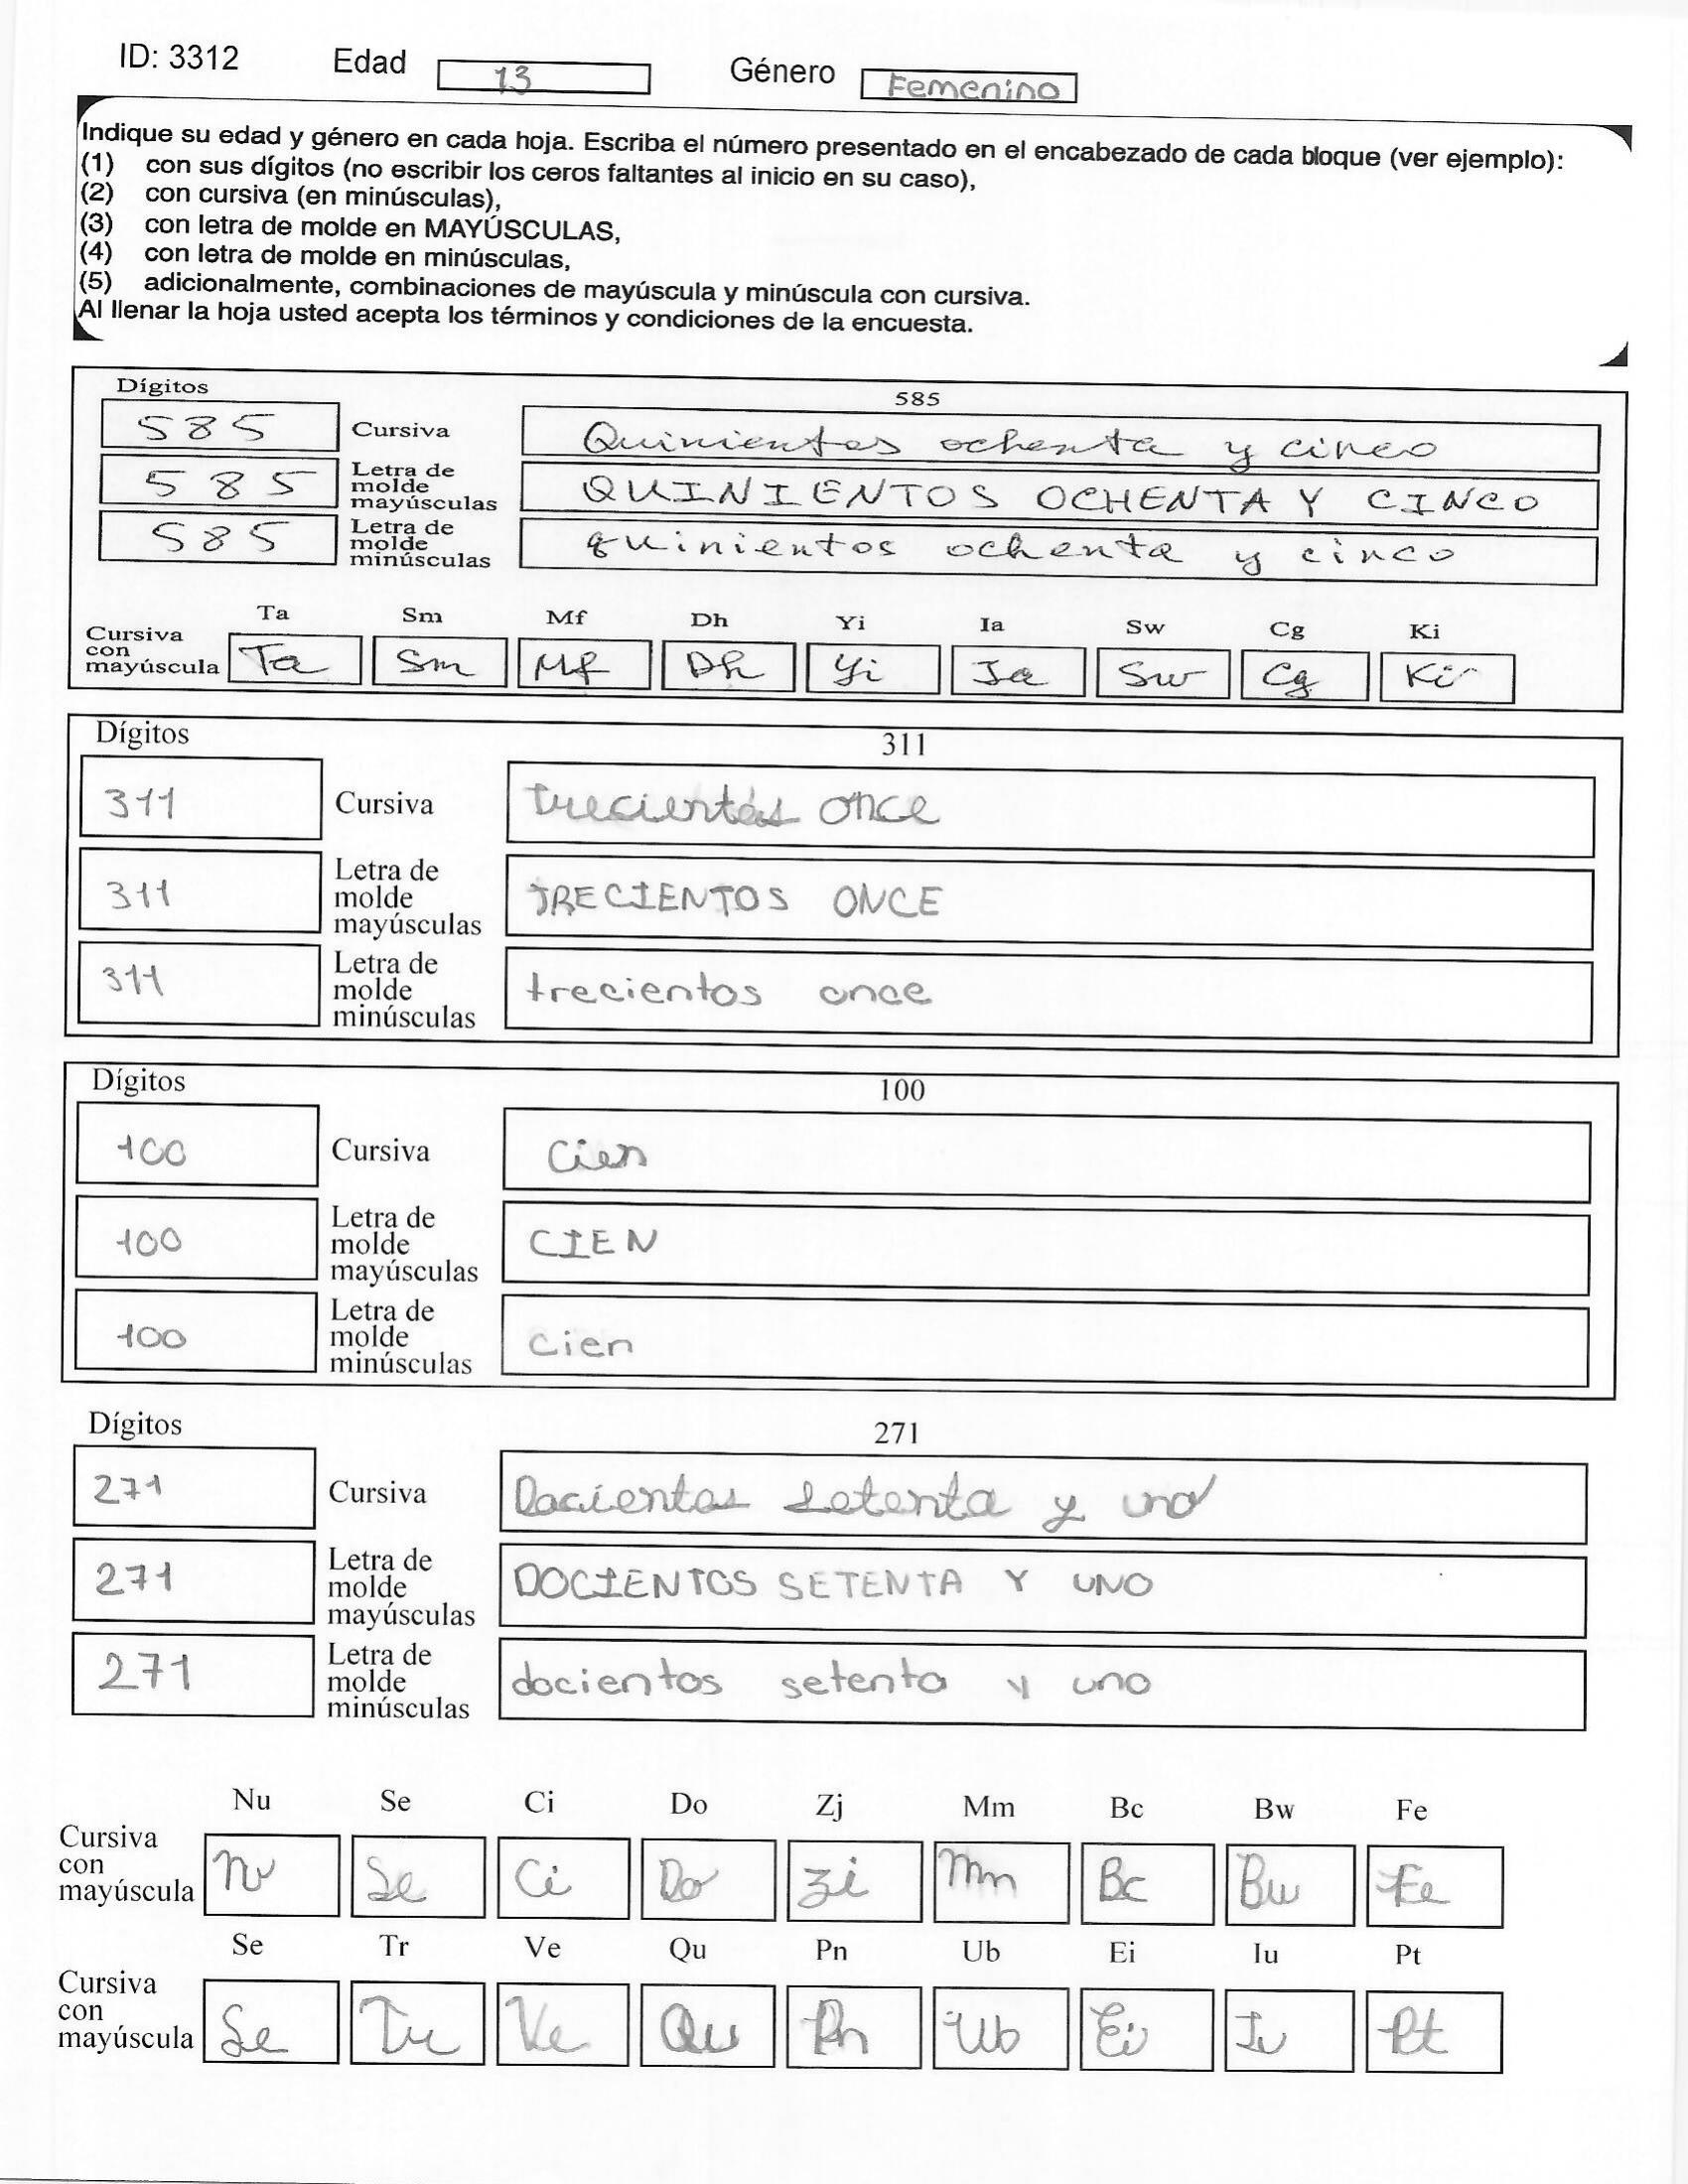 ID: 3312 Edad 13 Género Femenino
Indique su edad y género en cada hoja. Escriba el número presentado en el encabezado de cada bloque (ver ejemplo):
(1) con sus dígitos (no escribir los ceros faltantes al inicio en su caso),
(2) con cursiva (en minúsculas),
(3) con letra de molde en MAYÚSCULAS,
(4) con letra de molde en minúsculas,
(5) adicionalmente, combinaciones de mayúscula y minúscula con cursiva.
Al llenar la hoja usted acepta los términos y condiciones de la encuesta.
Dígitos 585
585 Cursiva Quinientos ochenta y cinco
585 Letra de molde mayúsculas QUINIENTOS OCHENTA Y CINCO
585 Letra de molde minúsculas quinientos ochenta y cinco
Ta Sm Mf Dh Yi Ia Sw Cg Ki
Cursiva con mayúscula Ta Sm Mf Dh Yi Ia Sw Cg Ki
Dígitos 311
311 Cursiva trecientos once
311 Letra de molde mayúsculas TRECIENTOS ONCE
311 Letra de molde minúsculas trecientos once
Dígitos 100
100 Cursiva Cien
100 Letra de molde mayúsculas CIEN
100 Letra de molde minúsculas cien
Dígitos 271
271 Cursiva Docientos setenta y uno
271 Letra de molde mayúsculas DOCIENTOS SETENTA Y UNO
271 Letra de molde minúsculas docientos setenta y uno
Nu Se Ci Do Zj Mm Bc Bw Fe
Cursiva con mayúscula Nu Se Ci Do Zi Mm Bc Bw Fe
Se Tr Ve Qu Pn Ub Ei Iu Pt
Cursiva con mayúscula Se Tr Ve Qu Pn Ub Ei Iu Pt